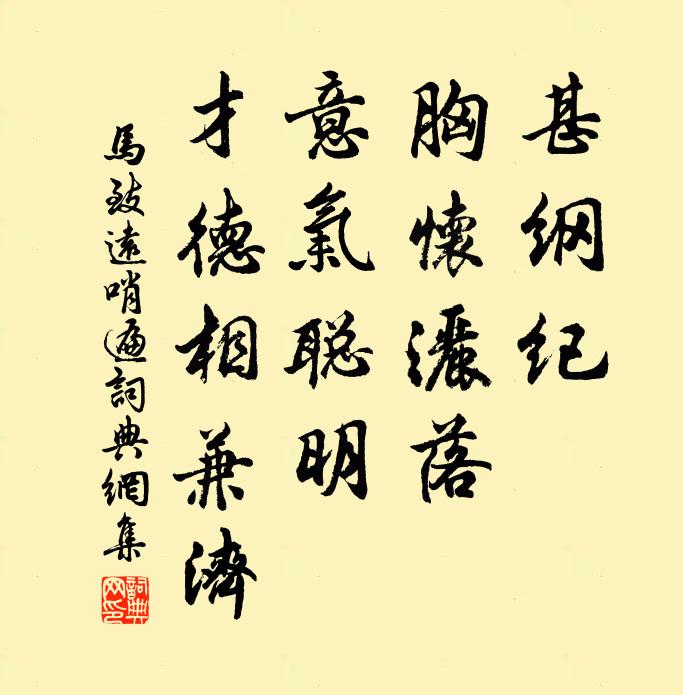 甚纲纪
胸懷灑落
意氣聪明
才德相兼濟
馬致遠哨遍詞典網集
詞典网印